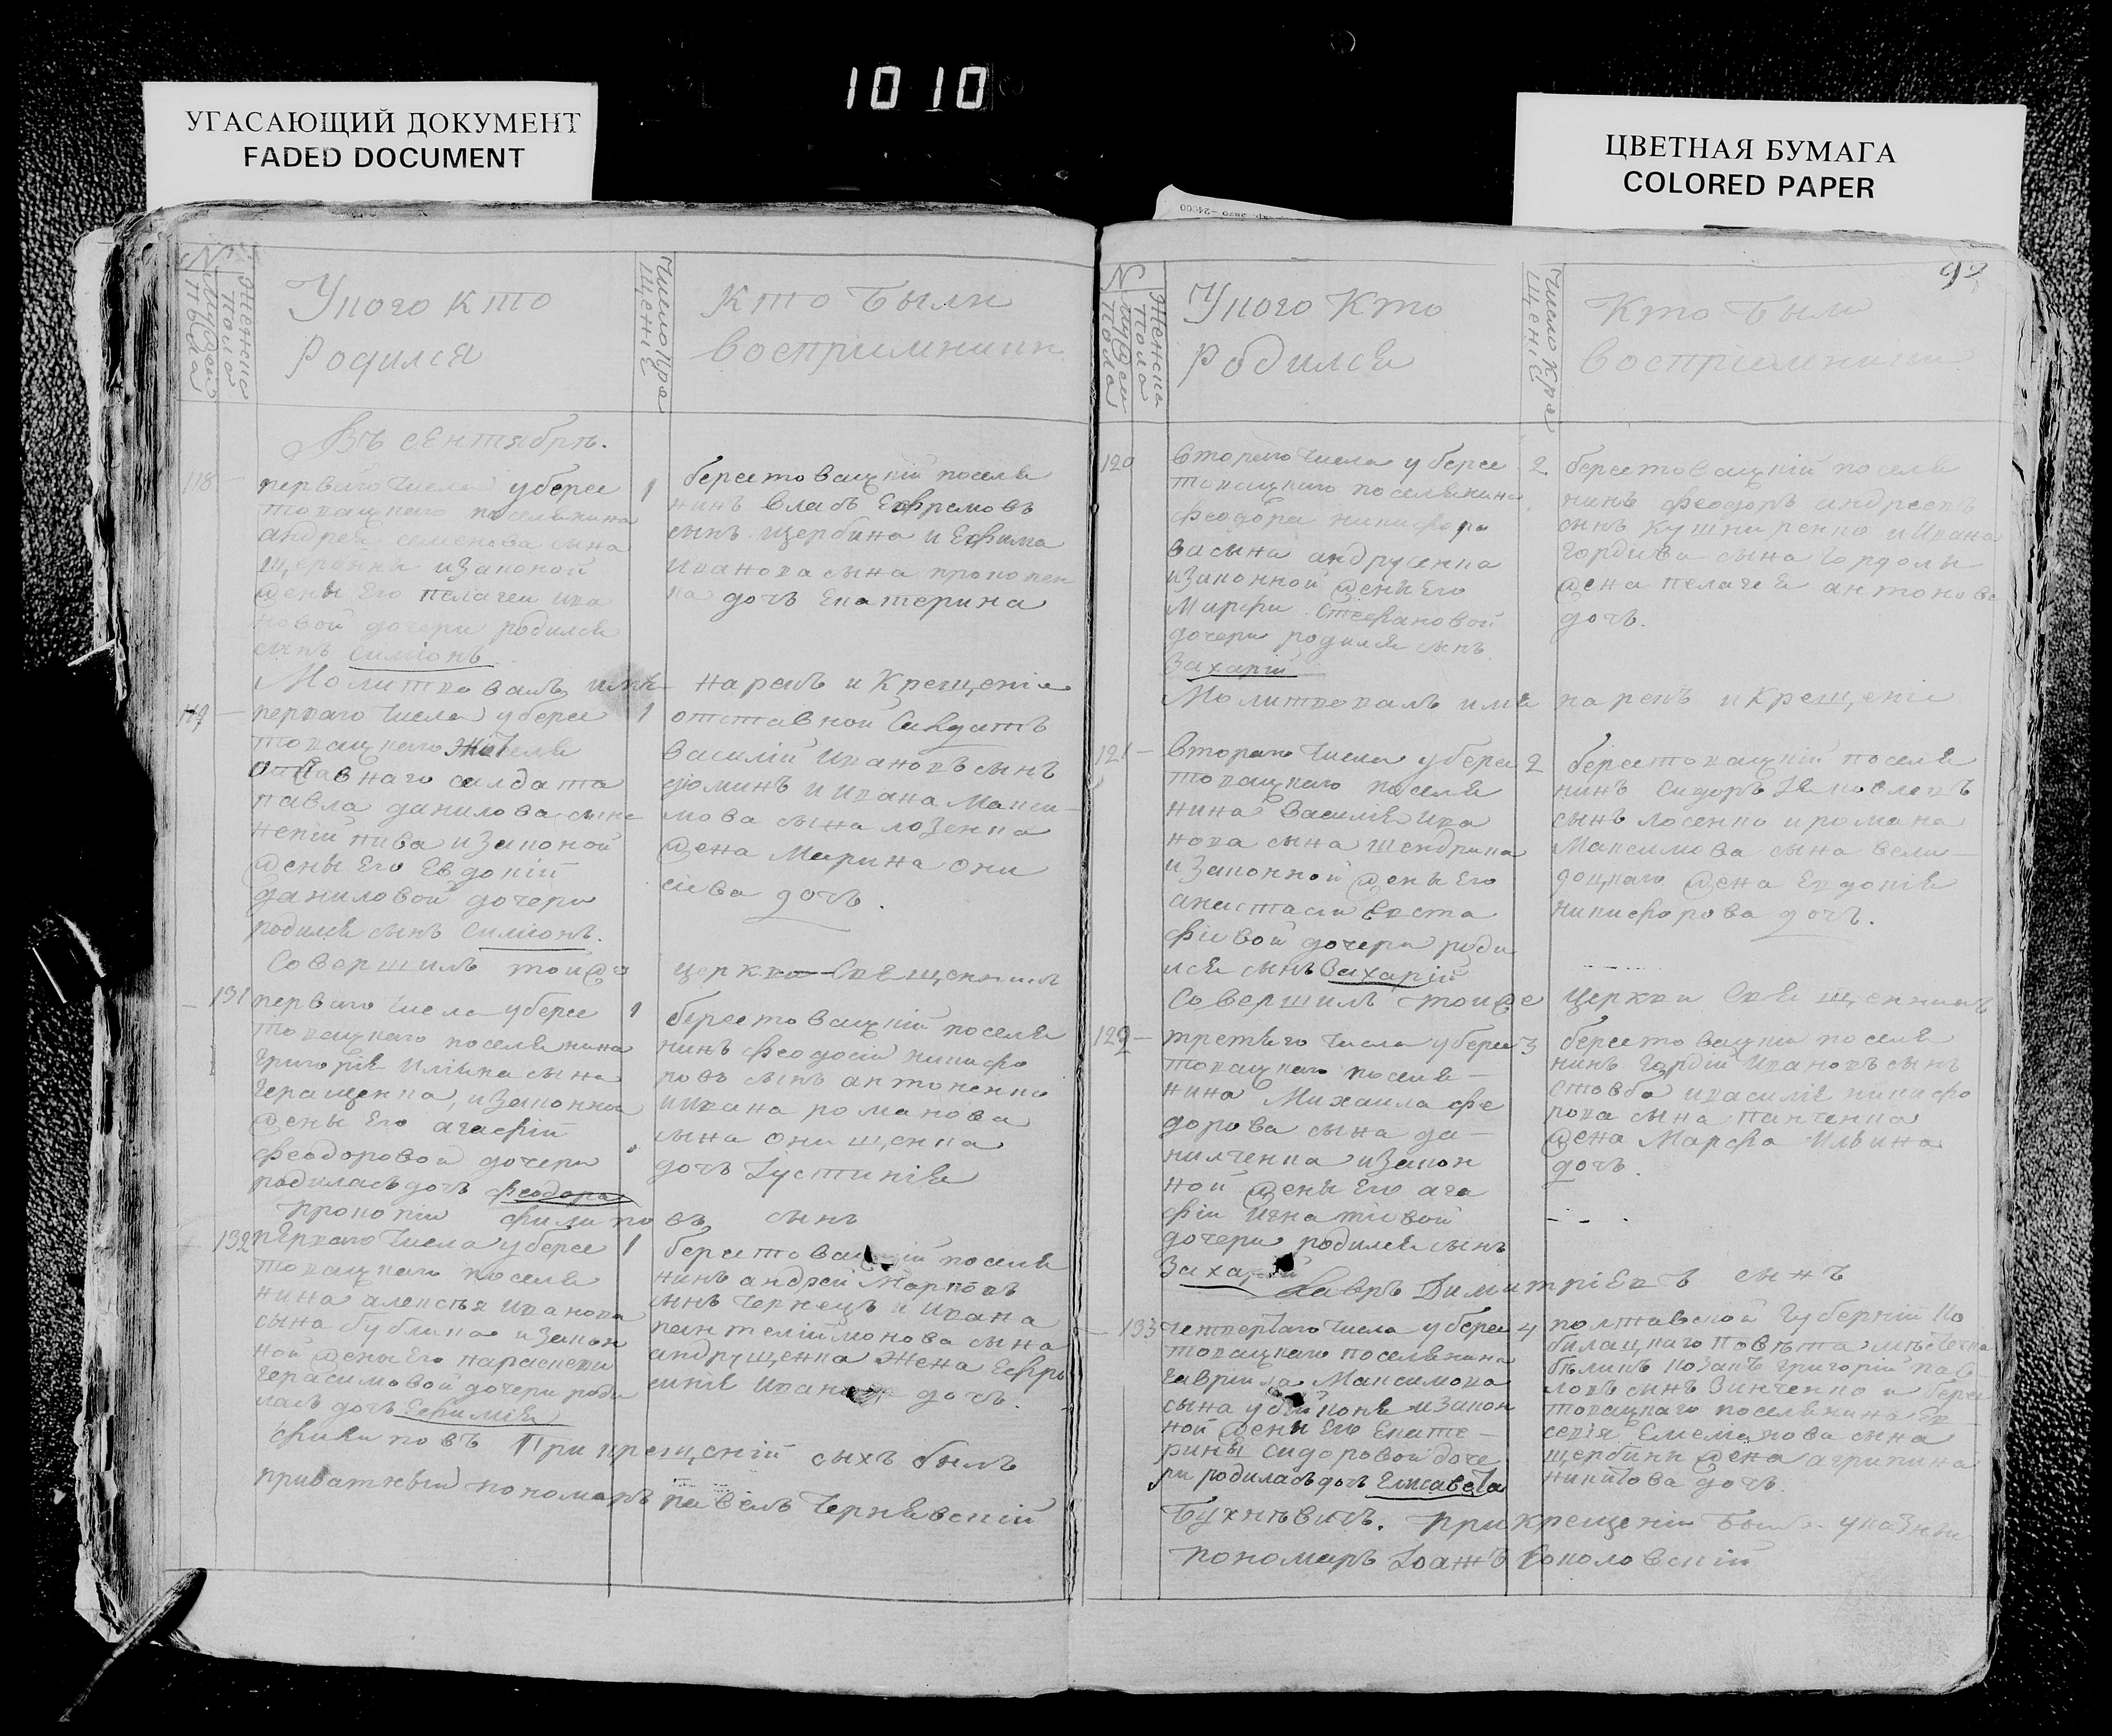 1010
УГАСАЮЩИЙ ДОКУМЕНТ
FADED DOCUMENT
ЦВЕТНАЯ БУМАГА
COLORED PAPER
N
Мужеской
пола
Женска
пола
Уного кто
Родился
Число Кре
щеніе
кто были
восприимники
Въ сентябрѣ.
118
перваго числа уберес
товацкаго поселянина
андрея семенова сына
щербины изаконой
жены Его пелагеи ива
новой дочери родился
сынъ Симіонъ
1
берестовацкій поселя
нинъ власъ Ефремовъ
сынъ щербина и Ефима
иванова сына прокопен
ка дочъ Екатерина
Молитвовалъ имя нарекъ и Крещенія
119
перваго числа уберес
товацкаго жителя
отставнаго салдата
павла данилова сына
непійпива изаконой
жены Его Евдокіи
даниловой дочери
родился сынъ Симіонъ.
1
отставной Салдатъ
василій Ивановъ сынъ
дюминъ и ивана Макси-
мова сына лозенка
жена Марина они
сіева дочъ.
Совершилъ тойже церкви Священникъ
131
перваго числа уберес
товацкаго поселянина
григорія Илліина сына
геращенка, изаконной
жены Его агафіи
феодоровой дочери
родиласъ дочъ феодора
1
берестовацкій поселя
нинъ феодосій никифо
ровъ сынъ антоненко
ивана романова
сына онищенка
дочъ Іустинія
прокопій филиповъ сынъ
132
перваго числа уберес
товацкаго поселя
нина алексея иванова
сына бублика изакон
ной жены Его параскеви
герасимовой дочери роди
ласъ дочъ Ефимія
1
берестовацкій поселя
нинъ андрей Марковъ
сынъ чернецъ и ивана
пантелиймонова сына
андрущенка жена Ефро
синія иванова дочъ.
филиповъ При крещеній сыхъ былъ
приватный пономаръ павелъ Чернявскій
92
N
Мужеск
пола
Женска
пола
Уного Кто
Родился
Число Кре
щеніе
Кто были
воспріемники
120
втораго числа уберес
товацкаго поселянина
феодора никифоро
ва сына андрусенка
изаконной жены Его
Марфи Стефановой
дочери родился сынъ
Захарій
2
берестовацкій поселя
нинъ феодоръ андреевъ
сынъ кушниренко и ивана
гордиева сына гордоли
жена пелагея антонова
дочъ.
Молитвовалъ имя нарекъ и крещеніе
121
втораго числа уберес
товацкаго поселя
нина василія ива
нова сына шендрика
изаконной жены Его
анастасіи Евста
фіевой дочери роди
лся сынъ Захарій
2
берестовацкій поселя
нинъ Сидоръ
сынъ лосенко и романа
Максимова сына вели-
доцкаго жена Евдокія
никифорова дочъ.
Совершилъ тойже церкви Священникъ
122
третьяго числа уберес
товацкаго поселя-
нина Михаила фе
дорова сына да-
нилченка изакон
ной жены Его ага
фіи игнатіевой
дочери родился сынъ
Захарій
3
берестовацкій поселя
нинъ гордій ивановъ сынъ
стовба ивасилія никифо
рова сына панченка
жена Марфа Ильина
дочъ.
Лавръ Димитріевъ сынъ
133
четвертаго числа уберес
товацкаго поселянина
гавриила Максимова
сына изакон
ной жены Его Екате-
рины сидоровой доче
ри родиласъ дочъ Елисавета
4
полтавской губерній Ко
биляцкаго повѣта мѣстечка
бѣликъ козакъ григорій пав
ловъ сынъ Зинченко и берес
товацкаго поселянина Ев
севія Емеманова сына
щербини жена агрипина
никитова дочъ.
Бухнѣвичъ. При крещеніи былъ указный
пономаръ Іоанъ Соколовскій